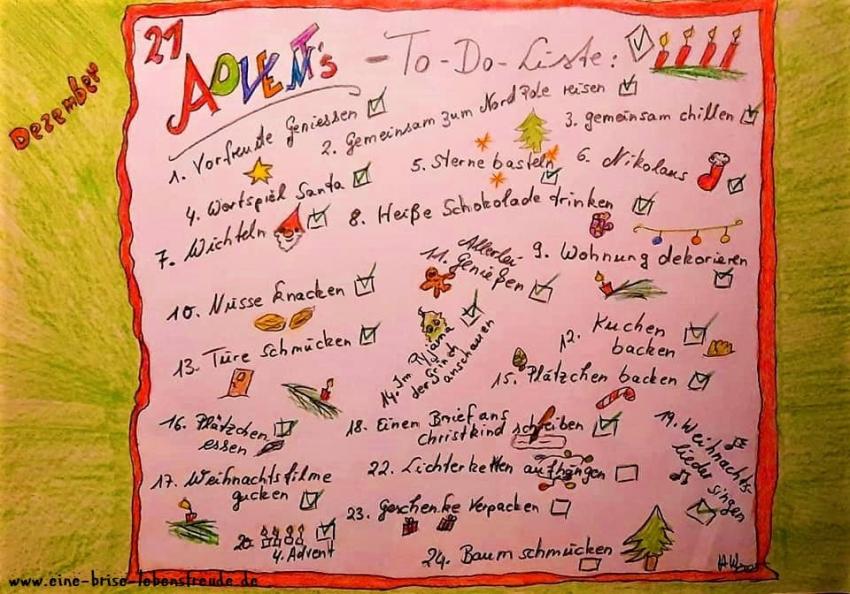 21
Dezember
ADVENT's -To-Do-Liste:
1. Vorfreude Geniessen
2. Gemeinsam zum Nordpole reisen
3. gemeinsam chillen
4. Wortspiel Santa
5. Sterne basteln
6. Nikolaus
7. Wichteln
8. Heiße Schokolade trinken
9. Wohnung dekorieren
10. Nüsse knacken
Allerlei
11. Genießen
12. Kuchen
backen
13. Türe Schmücken
14. Im Pyjama
der Grinch
anschauen
15. Plätzchen backen
16. Plätzchen
essen
17. Weihnachtsfilme
gucken
18. Einen Brief ans
christkind schreiben
19. Weihnachts-
lieder singen
20. 4. Advent
22. Lichterketten aufhängen
23. Geschenke Verpacken
24. Baum schmücken
www.eine-brise-lebensfreude.de